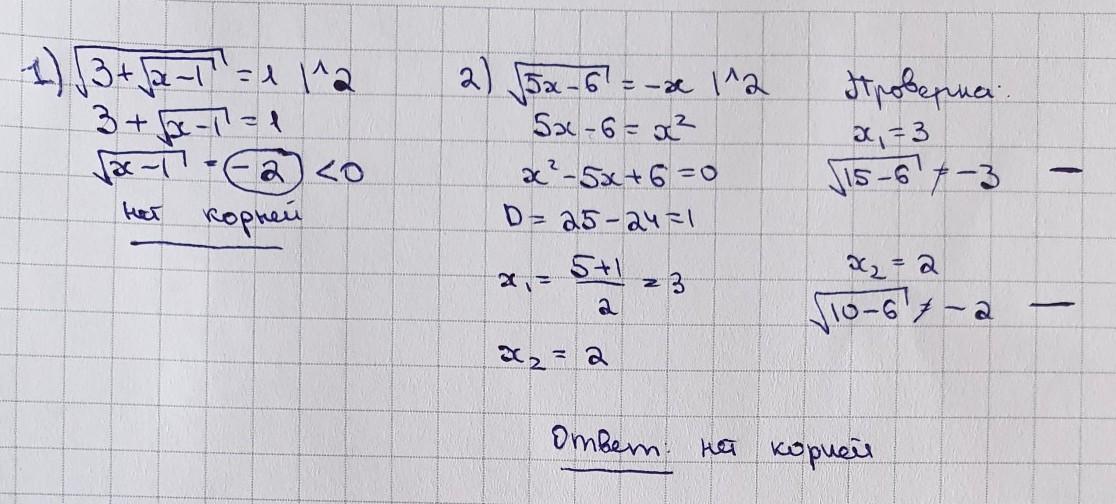 1) √(3+√(x-1)) = 1 |^2
3 + √(x-1) = 1
√(x-1) = -2 < 0
нет корней
2) √(5x-6) = -x |^2
5x-6 = x²
x²-5x+6=0
D = 25-24=1
x₁ = (5+1)/2 = 3
x₂ = 2
Проверка:
x₁ = 3
√(15-6) ≠ -3 —
x₂ = 2
√(10-6) ≠ -2 —
Ответ: нет корней